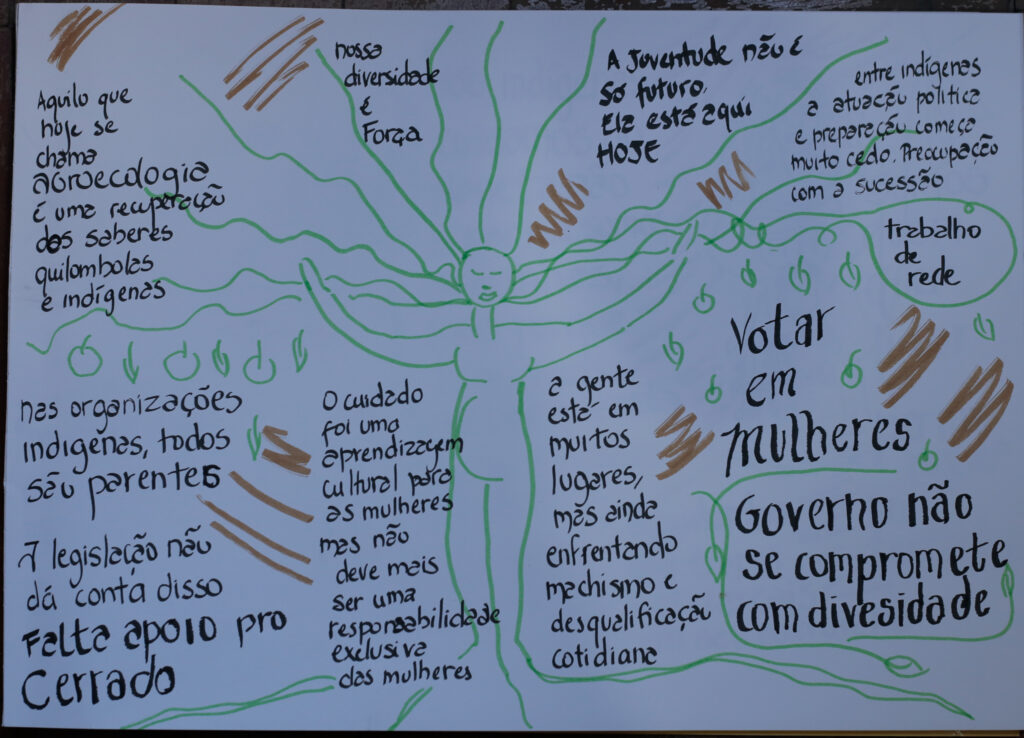 Aquilo que
hoje se
chama
agroecologia
é uma recuperação
dos saberes
quilombolas
e indígenas
nossa
diversidade
é
Força
A Juventude não é
Só futuro.
Ela está aqui
HOJE
entre indígenas
a atuação política
e preparação começa
muito cedo. Preocupação
com a sucessão
trabalho
de
rede
nas organizações
indígenas, todos
são parentes
A legislação não
dá conta disso
Falta apoio pro
Cerrado
O cuidado
foi uma
aprendizagem
cultural para
as mulheres
mas não
deve mais
ser uma
responsabilidade
exclusiva
das mulheres
a gente
está em
muitos
lugares,
mas ainda
enfrentando
machismo e
desqualificação
cotidiana
Votar
em
mulheres
Governo não
se compromete
com divesidade